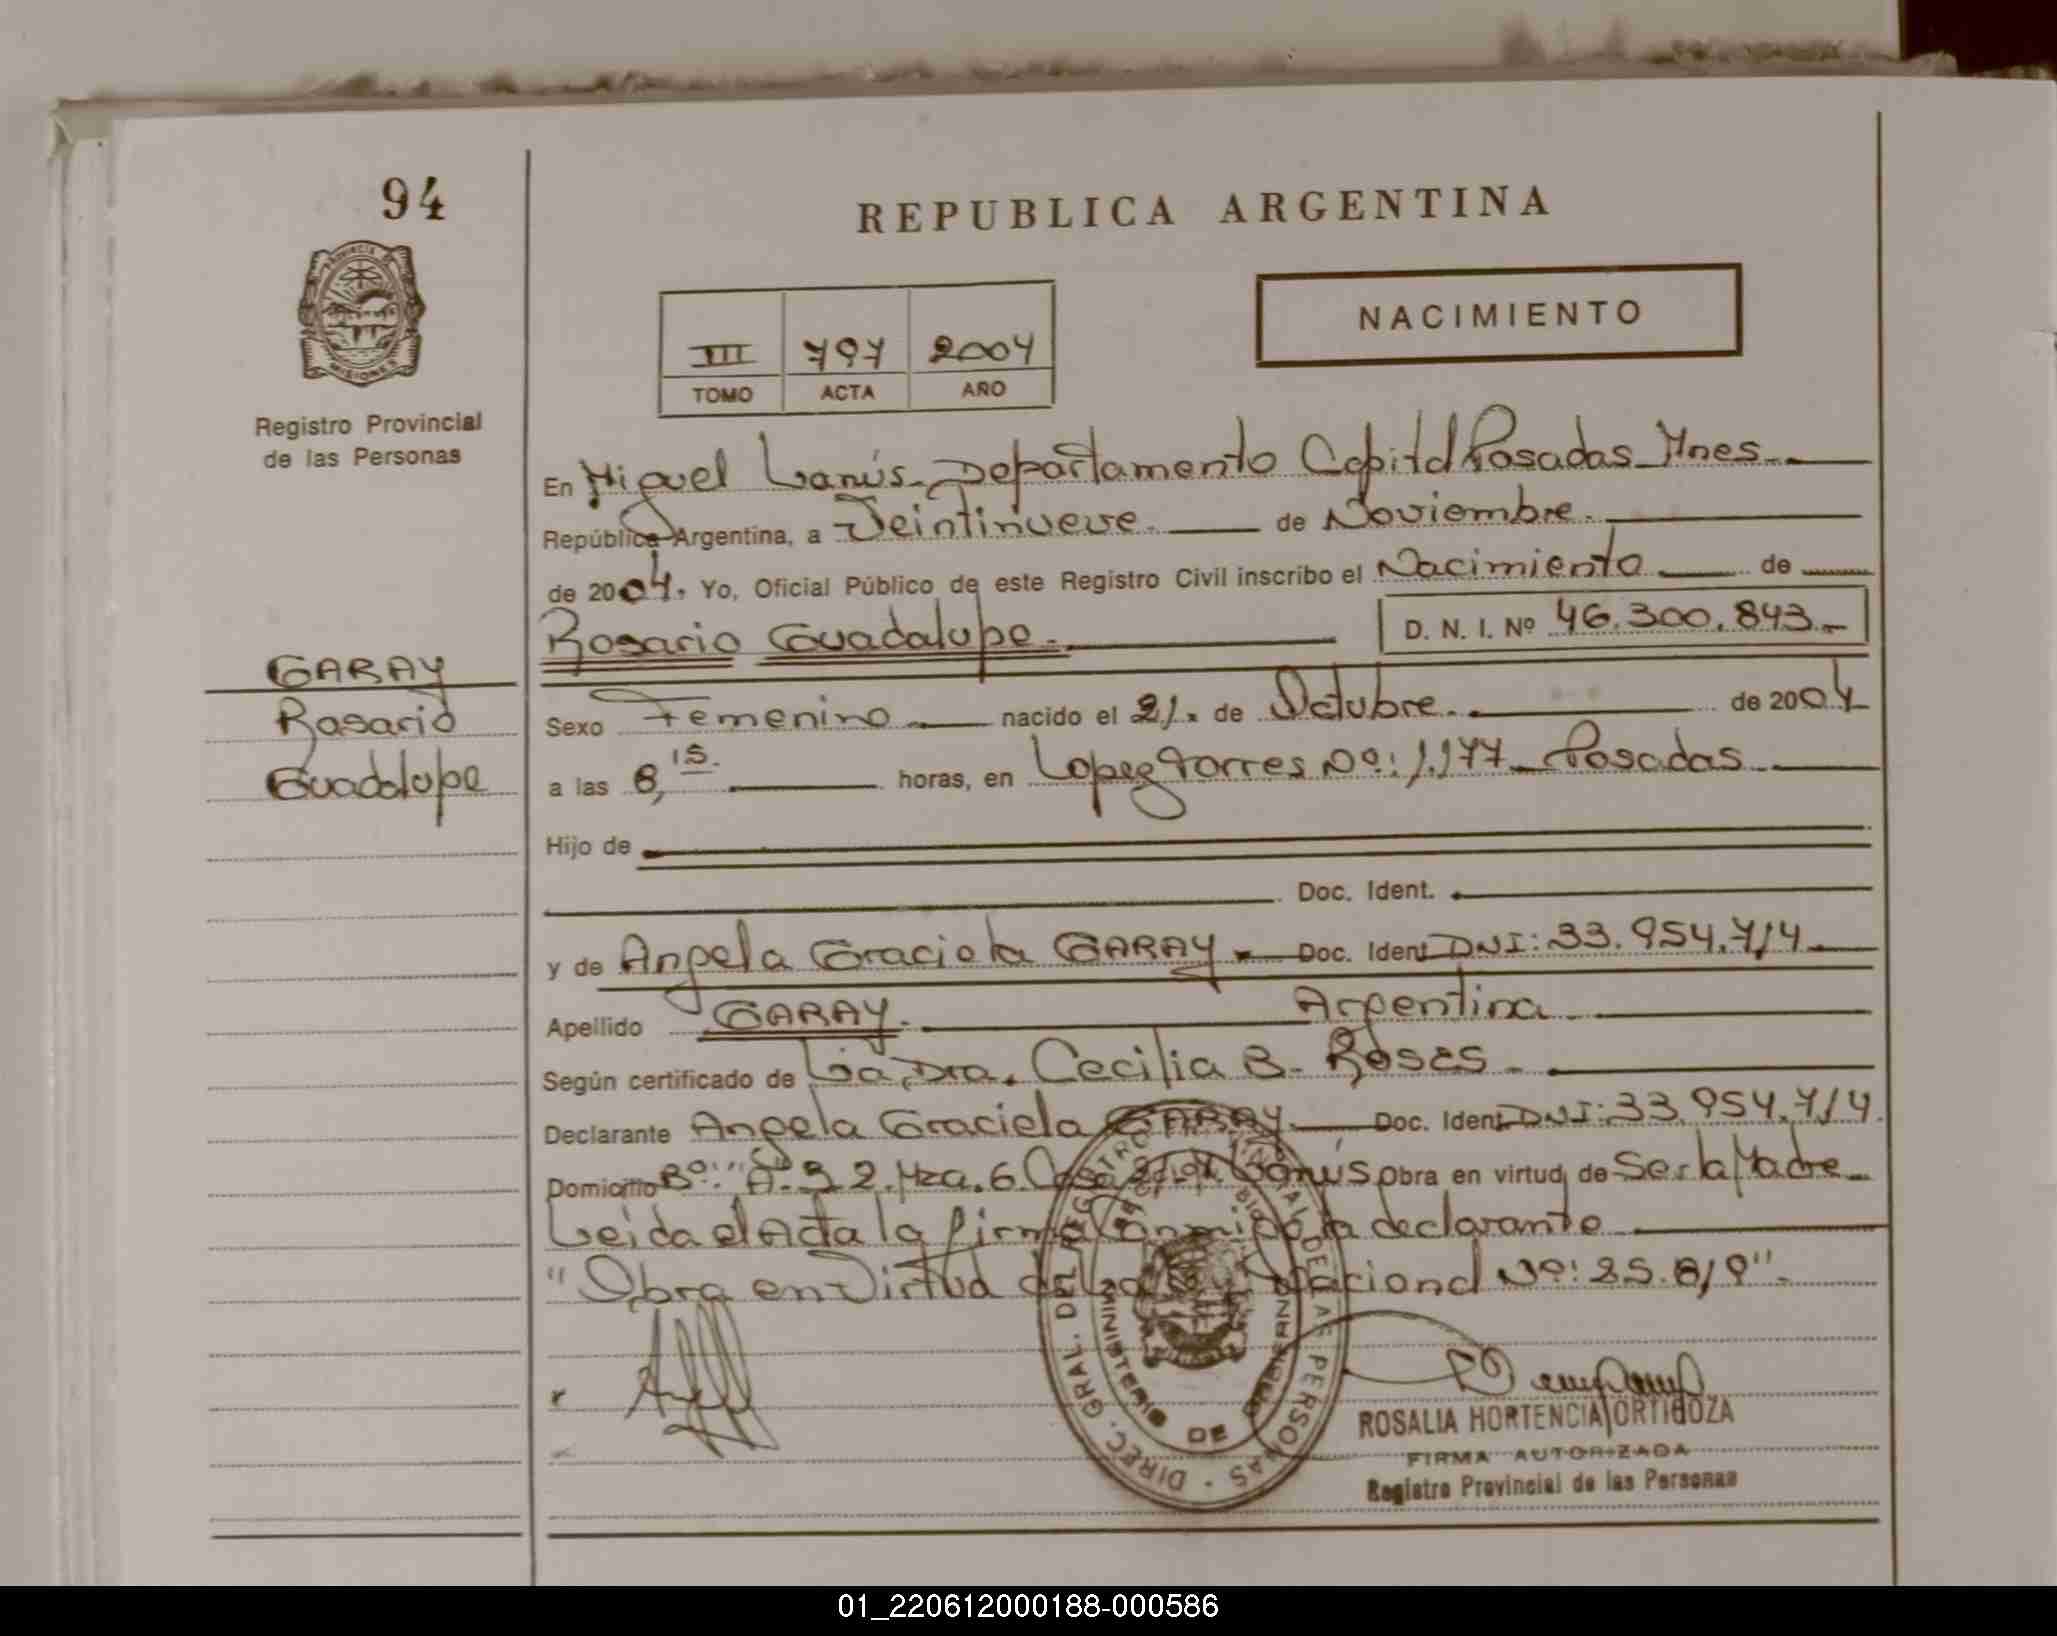 94
REPUBLICA ARGENTINA
NACIMIENTO
III 797 2004
TOMO ACTA AÑO
PROVINCIA DE MISIONES
Registro Provincial
de las Personas
En Miguel Lanús. Departamento Capital Posadas Mnes.
República Argentina, a Veintinueve. de Noviembre.
de 2004. Yo, Oficial Público de este Registro Civil inscribo el Nacimiento de
Rosario Guadalupe. D. N. I. Nº 46.300.843.
GARAY
Rosario
Guadalupe
Sexo Femenino nacido el 21. de Octubre. de 2004
a las 8,15. horas, en Lopez Torres Nº: 1.177 Posadas
Hijo de
Doc. Ident.
y de Angela Graciela GARAY. Doc. Ident DNI: 33.954.714
Apellido GARAY. Argentina
Según certificado de La, Dra. Cecilia B. Roses
Declarante Angela Graciela GARAY Doc. Ident DNI: 33.954.714.
Domicilio Bº: "A. 3 2. Mza. 6. Casa Lanús Obra en virtud de Ser la Madre
Leida el Acta la firma Conmigo la declarante
"Obra en Virtud de Nacional Nº: 25.819".
DIREC. GRAL. DEL REGISTRO PROVINCIAL DE LAS PERSONAS
MINISTERIO DE GOBIERNO
ROSALIA HORTENCIA ORTIGOZA
FIRMA AUTORIZADA
Registro Provincial de las Personas
01_220612000188-000586